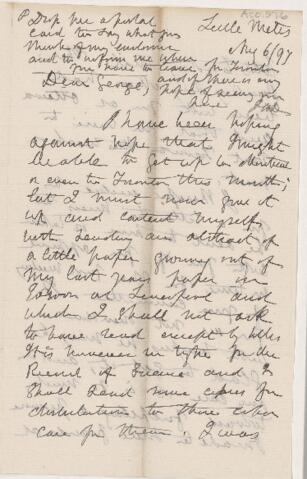 Acc 976
P Drop me a postal
card to say what you
think of my enclosure
and to inform me when
you have to leave for Toronto
and if there is any
hope of seeing you
here JWD
Little Metis
Aug 6/97
Dear George,
I have been hoping
against hope that I might
be able to get up to Montreal
or even to Toronto this month;
but I must now give it
up and content myself
with sending an abstract of
a little paper growing out of
my last years paper on
Eozoon at Liverpool and
which I shall not ask
to have read except by title.
It is however in type for the
Record of Science and I
shall send more copies for
distribution to those who
care for them. I was